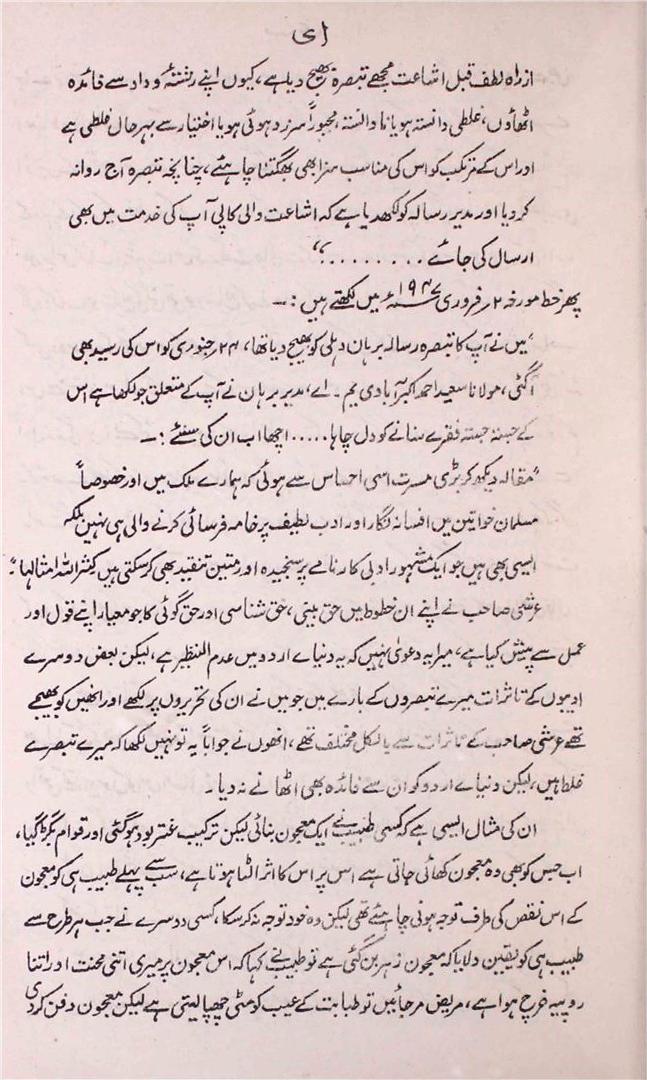 ای
ازراہ لطف قبل اشاعت مجھے تبصرہ بھیج دیا ہے، کیوں اپنے رشتۂ وداد سے فائدہ
اٹھاؤں، غلطی دانستہ ہو یا نادانستہ، مجبوراً سرزد ہوئی ہو یا اختیار سے بہرحال غلطی ہے
اور اس کے مرتکب کو اس کی مناسب سزا بھی بھگتنا چاہئے، چنانچہ تبصرہ آج روانہ
کر دیا اور مدیر رسالہ کو لکھدیا ہے کہ اشاعت والی کاپی آپ کی خدمت میں بھی
ارسال کی جائے ........"
پھر خط مورخہ ۲ر فروری ۱۹۴۷ء میں لکھتے ہیں :۔
"میں نے آپ کا تبصرہ رسالہ برہان دہلی کو بھیج دیا تھا، ۲۴ر جنوری کو اس کی رسید بھی
آگئی، مولانا سعید احمد اکبرآبادی یم۔اے، مدیر برہان نے آپ کے متعلق جو لکھا ہے اس
کے جستہ جستہ فقرے سنانے کو دل چاہا..... اچھا اب ان کی سنئے :۔
"مقالہ دیکھ کر بڑی مسرت اسی احساس سے ہوئی کہ ہمارے ملک میں اور خصوصاً
مسلمان خواتین میں افسانہ نگار اور ادب لطیف پر خامہ فرسائی کرنے والی ہی نہیں بلکہ
ایسی بھی ہیں جو ایک مشہور ادبی کارنامے پر سنجیدہ اور متین تنقید بھی کر سکتی ہیں کثر اللہ امثالہا"۔
عرشی صاحب نے اپنے ان خطوط میں حق بینی، حق شناسی اور حق گوئی کا جو معیار اپنے قول اور
عمل سے پیش کیا ہے، میرا یہ دعویٰ نہیں کہ یہ دنیاے اردو میں عدم النظیر ہے، لیکن بعض دوسرے
ادیبوں کے تاثرات میرے تبصروں کے بارے میں جو میں نے ان کی تحریروں پر لکھے اور انھیں کو بھیجے
تھے عرشی صاحب کے تاثرات سے بالکل مختلف تھے، انھوں نے جواباً یہ تو نہیں لکھا کہ میرے تبصرے
غلط ہیں، لیکن دنیاے اردو کو ان سے فائدہ بھی اٹھانے نہ دیا۔
ان کی مثال ایسی ہے کہ کسی طبیب نے ایک معجون بنائی لیکن ترکیب غتربود ہو گئی اور قوام بگڑ گیا،
اب جس کو بھی وہ معجون کھلائی جاتی ہے اس پر اس کا اثر الٹا ہوتا ہے، سب سے پہلے طبیب ہی کو معجون
کے اس نقص کی طرف توجہ ہونی چاہئے تھی لیکن وہ خود توجہ نہ کر سکا، کسی دوسرے نے جب ہر طرح سے
طبیب ہی کو یقین دلایا کہ معجون زہر بن گئی ہے تو طبیب نے کہا کہ اس معجون پر میری اتنی محنت اور اتنا
روپیہ خرچ ہوا ہے، مریض مر جائیں تو طبابت کے عیب کو مٹی چھپا لیتی ہے لیکن معجون دفن کر دی